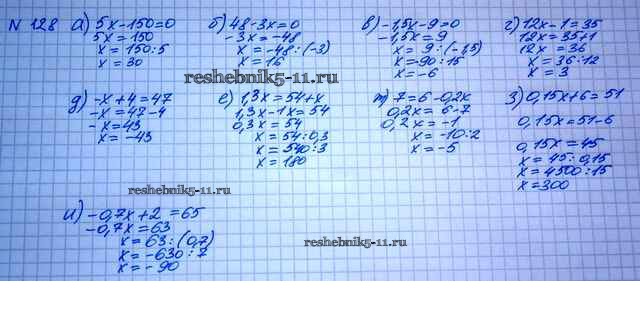 N 128 а) 5x-150=0
5x=150
x=150:5
x=30
б) 48-3x=0
-3x=-48
x=-48:(-3)
x=16
в) -1,5x-9=0
-1,5x=9
x=9:(-1,5)
x=-90:15
x=-6
г) 12x-1=35
12x=35+1
12x=36
x=36:12
x=3
reshebnik5-11.ru
д) -x+4=47
-x=47-4
-x=43
x=-43
е) 1,3x=54+x
1,3x-1x=54
0,3x=54
x=54:0,3
x=540:3
x=180
ж) 7=6-0,2x
0,2x=6-7
0,2x=-1
x=-10:2
x=-5
з) 0,15x+6=51
0,15x=51-6
0,15x=45
x=45:0,15
x=4500:15
x=300
reshebnik5-11.ru
и) -0,7x+2=65
-0,7x=63
x=63:(0,7)
x=-630:7
x=-90
reshebnik5-11.ru